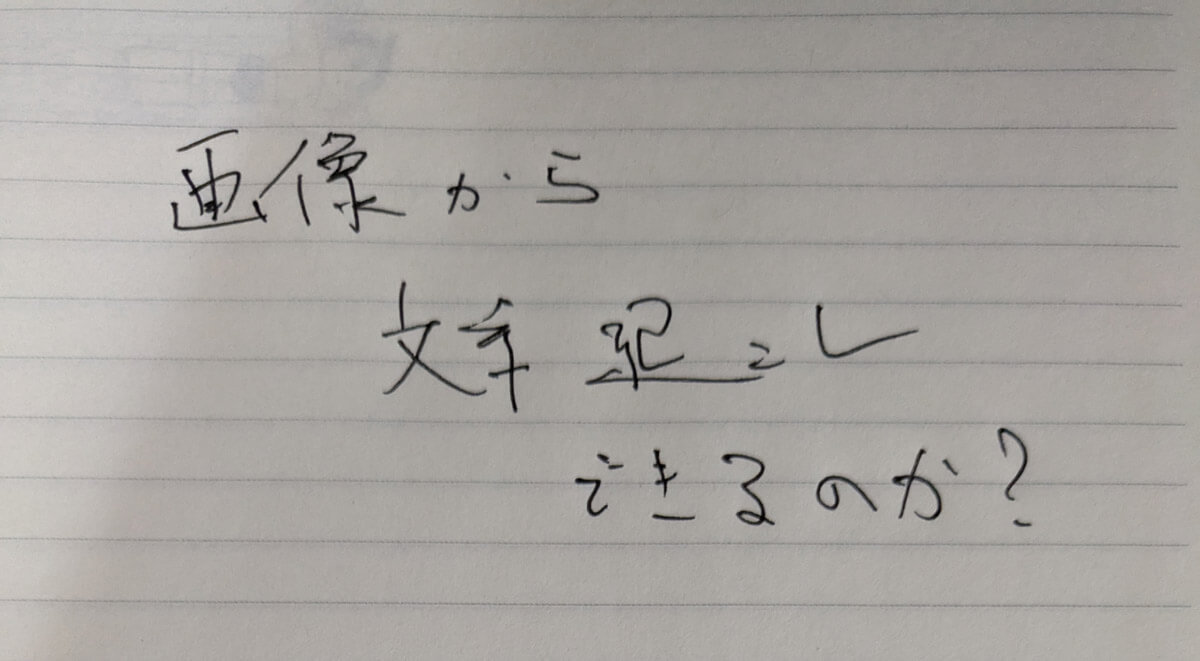 画像から
文字起こし
できるのか?